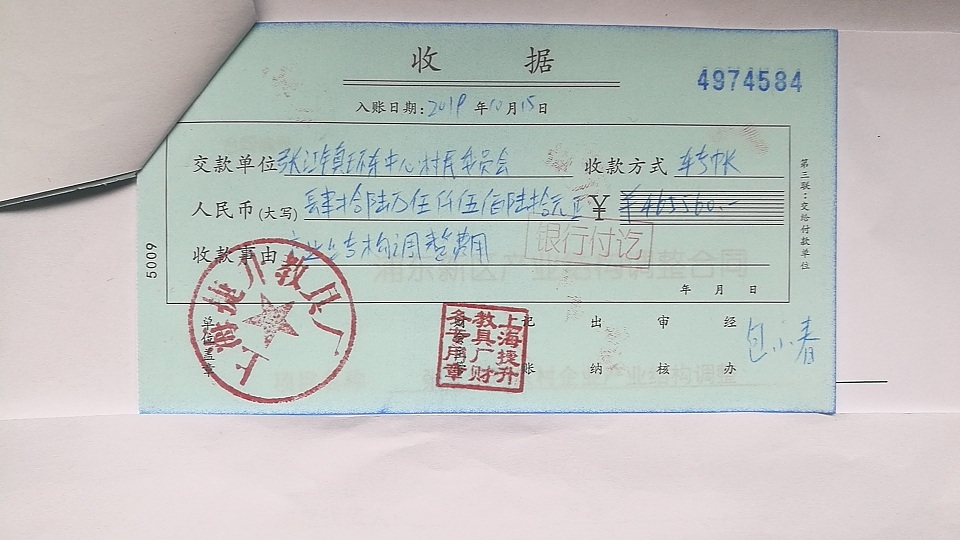 收 据
4974584
入账日期：2019 年 10 月 15 日
交款单位 张江镇环东中心村民委员会 收款方式 转帐
人民币(大写) 肆拾陆万伍仟伍佰陆拾元正 ￥ ￥465560.-
收款事由 产业结构调整费用
银行付讫
年 月 日
第三联：交给付款单位
5009
单位盖章
上海捷升教具厂
上海捷升教具厂财务专用章
记账
出纳
审核
经办
包小春